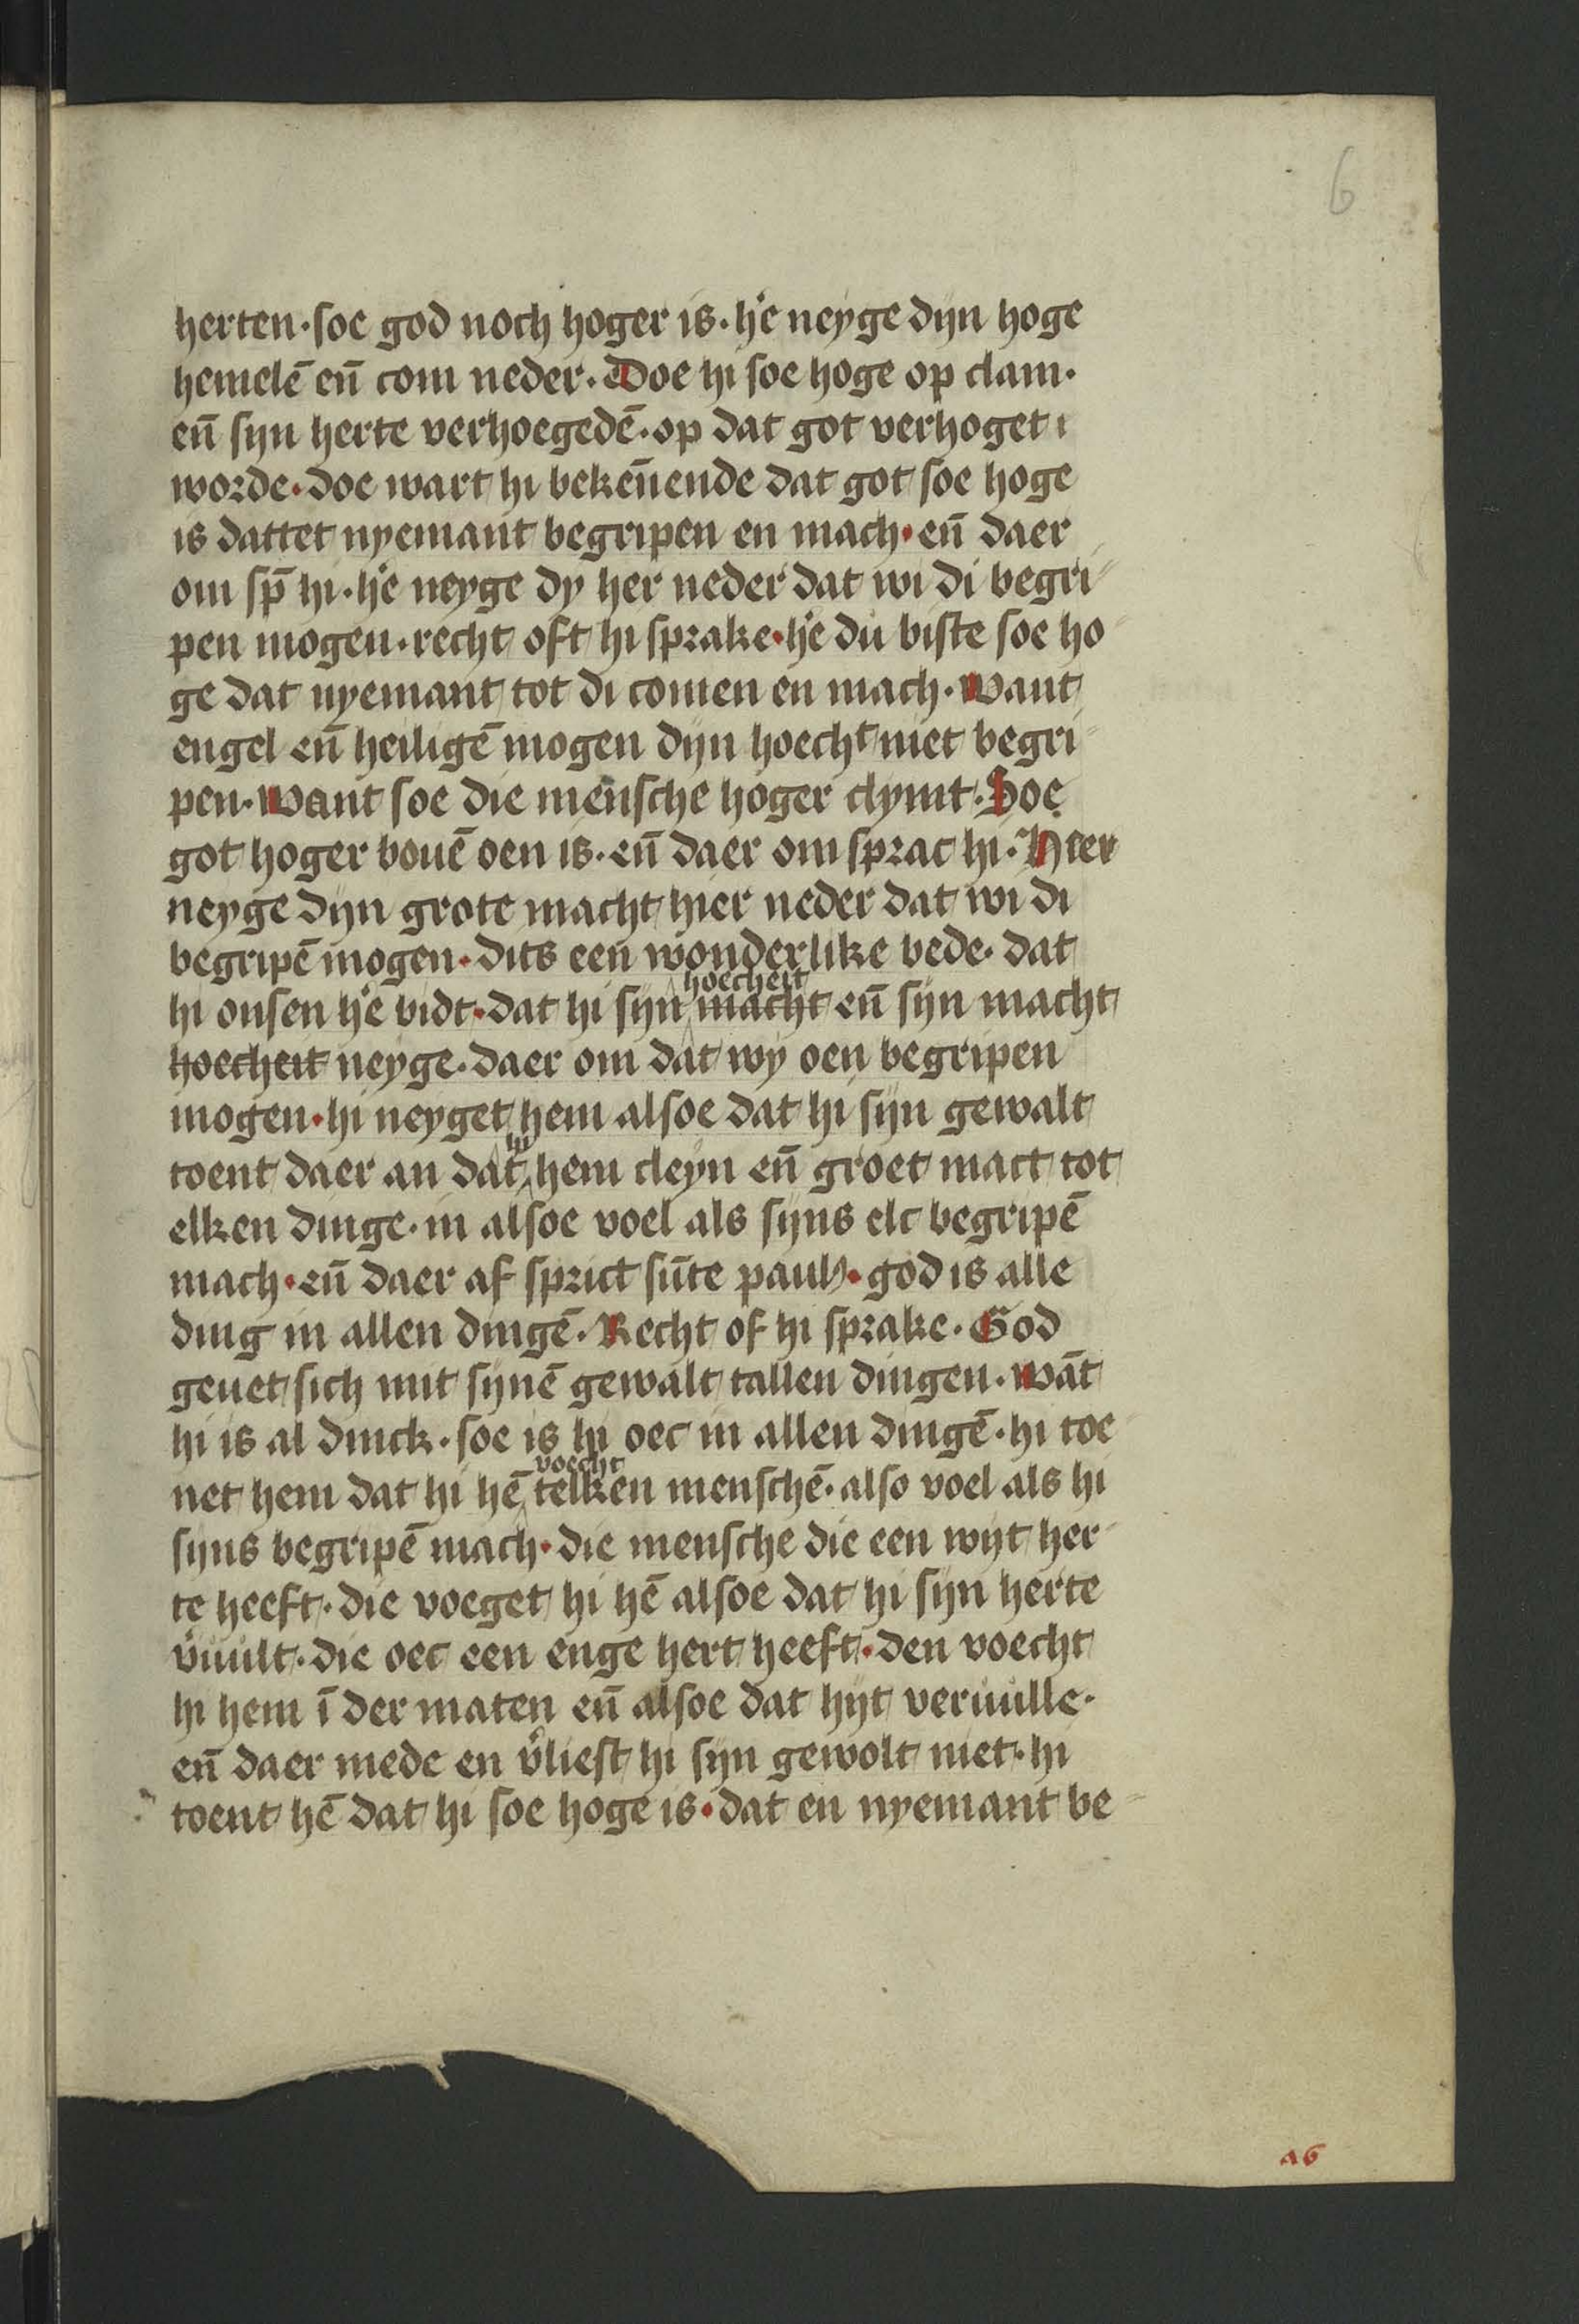 6
herten·soe god noch hoger is·hẽ neyge dijn hoge
hemelē eñ com neder·Doe hi soe hoge op clam·
eñ sijn herte verhoegedē·op dat got verhoget
worde·doe wart hi bekēnende dat got soe hoge
is dattet nyemant begripen en mach·eñ daer
om sp̄ hi·hẽ neyge dy her neder dat wi di begri
pen mogen·recht oft hi sprake·hẽ du biste soe ho
ge dat nyemant tot di comen en mach·Want
engel eñ heiligē mogen dijn hoecht niet begri
pen·Want soe die mensche hoger clymt·Soe
got hoger bouē oen is·eñ daer om sprac hi·Heer
neyge dijn grote macht hier neder dat wi di
begripē mogen·dits een wonderlike bede·dat
hoecheit
hi onsen hẽ bidt·dat hi sijn macht eñ sijn macht
hoecheit neyge·daer om dat wy oen begripen
mogen·hi neyget hem alsoe dat hi sijn gewalt
hi
toent daer an dat hem cleyn eñ groet mact tot
elken dinge·in alsoe voel als sijns elc begripē
mach·eñ daer af sprict sūte paulꝰ·god is alle
ding in allen dingē·Recht of hi sprake·God
geuet sich mit sijnē gewalt tallen dingen·wāt
hi is al dinck·soe is hi oec in allen dingē·hi toe
voecht
net hem dat hi hē telken menschē·also voel als hi
sijns begripē mach·die mensche die een wijt her
te heeft·die voeget hi hē alsoe dat hi sijn herte
v̾uult·die oec een enge hert heeft·den voecht
hi hem ī der maten eñ alsoe dat hijt veruulle·
eñ daer mede en v̾liest hi sijn gewolt niet·hi
toent hē dat hi soe hoge is·dat en nyemant be
a6